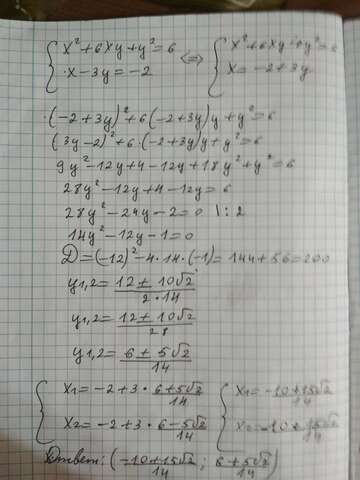 { x² + 6xy + y² = 6 <=> { x² + 6xy + y² = 6
{ x - 3y = -2 { x = -2 + 3y
(-2+3y)² + 6(-2+3y)y + y² = 6
(3y-2)² + 6·(-2+3y)y + y² = 6
9y² - 12y + 4 - 12y + 18y² + y² = 6
28y² - 12y + 4 - 12y = 6
28y² - 24y - 2 = 0 |:2
14y² - 12y - 1 = 0
D = (-12)² - 4·14·(-1) = 144 + 56 = 200
y1,2 = (12 ± 10√2)/(2·14)
y1,2 = (12 ± 10√2)/28
y1,2 = (6 ± 5√2)/14
{ x1 = -2 + 3·(6+5√2)/14 { x1 = (-10+15√2)/14
{ x2 = -2 + 3·(6-5√2)/14 { x2 = (-10-15√2)/14
Ответ: ((-10+15√2)/14; (6+5√2)/14)